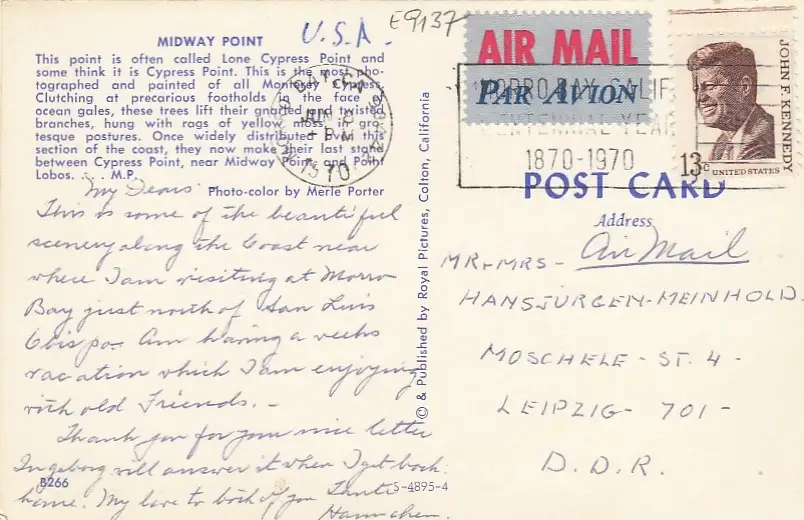 U.S.A.
E9137
MIDWAY POINT
This point is often called Lone Cypress Point and
some think it is Cypress Point. This is the most pho-
tographed and painted of all Monterey Cypress.
Clutching at precarious footholds in the face of
ocean gales, these trees lift their gnarled and twisted
branches, hung with rags of yellow moss in gro-
tesque postures. Once widely distributed on this
section of the coast, they now make their last stand
between Cypress Point, near Midway Point and Point
Lobos. . . . M.P.
Photo-color by Merle Porter
My Dears
This is some of the beautiful
scenery along the Coast near
where I am visiting at Morro
Bay just north of San Luis
Obispo. Am having a weeks
vacation which I am enjoying
with old Friends. -
Thank you for your nice letter
Ingeborg will answer it when I get back
home. My love to both of you Tante
Hannchen.
B266
S-4895-4
© & Published by Royal Pictures, Colton, California
AIR MAIL
PAR AVION
MORRO BAY, CALIF.
CENTENNIAL YEAR
1870-1970
JUN
PM
1970
JOHN F. KENNEDY
13c
UNITED STATES
POST CARD
Address
Air Mail
MR + MRS -
HANSJURGEN - MEINHOLD.
MOSCHELE - ST. 4 -
LEIPZIG - 701 -
D.D.R.